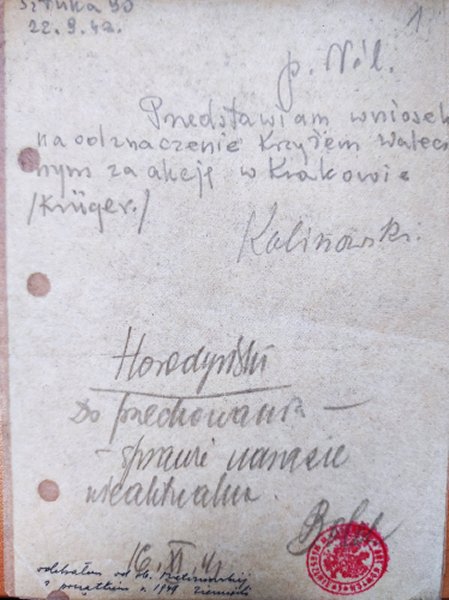 Sztuka 90
22.9.43.
1
p. Nil.
Przedstawiam wniosek
na odznaczenie Krzyżem Walecz
nym za akcję w Krakowie
/Krüger./
Kalinowski.
Horodyński
Do przechowania —
- sprawa narazie
nieaktualna.
16.XI.
odebrałem od
z początkiem r. 1949